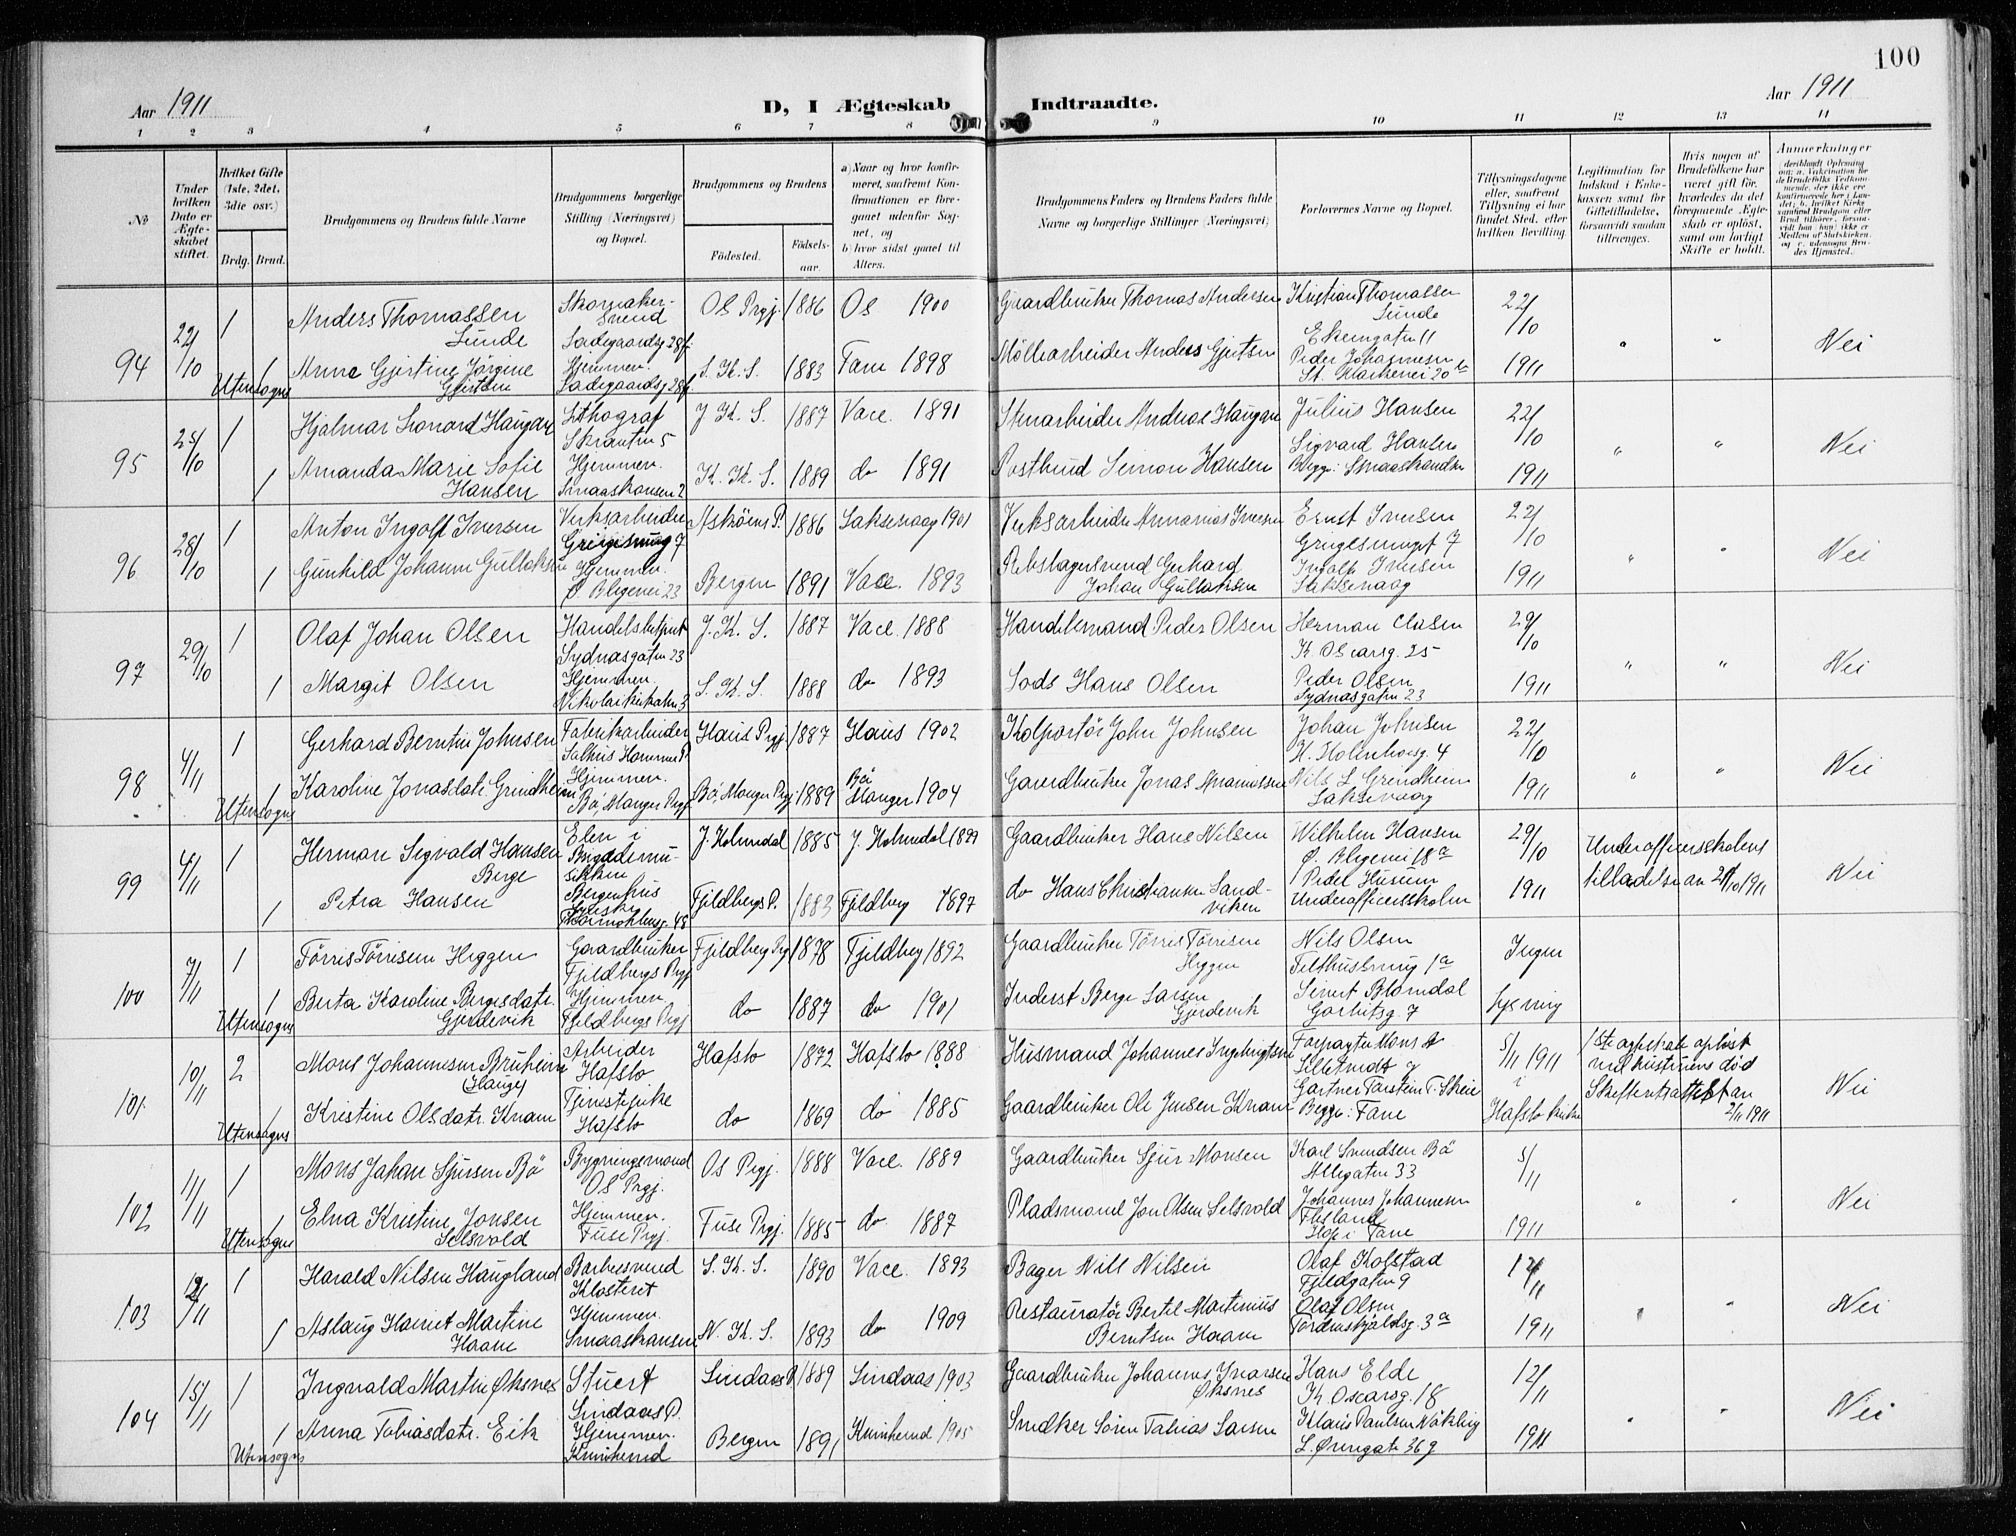 100
Aar 1911
D, I Ægteskab Indtraadte.
Aar 1911
1 2 3 4 5 6 7 8 9 10 11 12 13 14
№
Under hvilken Dato er Ægteskabet stiftet.
Hvilket Gifte (1ste, 2det, 3die osv.)
Brdg. Brud.
Brudgommens og Brudens fulde Navne
Brudgommens borgerlige Stilling (Næringsvei) og Bopæl.
Brudgommens og Brudens
Födested.
Födselsaar.
a) Naar og hvor konfirmeret, saafremt Konfirmationen er foregaaet udenför Sognet, og
b) hvor sidst gaaet til Alters.
Brudgommens Faders og Brudens Faders fulde Navne og borgerlige Stillinger (Næringsvei)
Forlovernes Navne og Bopæl.
Tillysningsdagene eller, saafremt Tillysning ei har fundet Sted, efter hvilken Bevilling.
Legitimation for Indskud i Enkekassen samt for Giftetilladelse, forsaavidt saadan tiltrænges.
Hvis nogen af Brudefolkene har været gift för, hvorledes da det foregaaende Ægteskab er oplöst, samt om lovligt Skifte er holdt.
Anmærkninger
94 22/10 1 Anders Thomassen Sunde Skomakersvend Sadegaardsg 28f Os Prgj. 1886 Os 1900 Gaardbruker Thomas Andersen Kristian Thomassen Sunde 22/10
Utensogns 1 Anne Gjertine Jörgine Gjertsen Hjemmev. Sadegaardsg 28f S. K. S. 1883 Fane 1898 Møllearbeider Anders Gjertsen Peder Johannesen 1911 " " Nei
95 25/10 1 Hjalmar Leonard Haugan Lithograf Skranten 5 J. K. S. 1887 Vace. 1891 Stenarbeider Andreas Haugan Julius Hansen 22/10
1 Amanda Marie Sofie Hansen Hjemmev. Smaaskansen 2 K. K. S. 1889 do 1891 Postbud Simon Hansen Sigvard Hansen Begge: Smaaskandsen 1911 " " Nei
96 28/10 1 Anton Ingolf Iversen Verksarbeider 7 Askøens P. 1886 Saksevaag 1901 Verksarbeider Annanias Iversen Ernst Iversen 7 22/10
1 Gunhild Johanne Gullaksen Hjemmev. 23 Bergen 1891 Vace. 1893 Rebslagersvend Gerhard Johan Gullaksen Ingolf Iversen Saksevaag 1911 " " Nei
97 29/10 1 Olaf Johan Olsen Handelsbetjent Sydnæsgaten 23 J. K. S. 1887 Vace. 1888 Handelsmand Peder Olsen Herman Clasen K. Oscarsg. 25 29/10
1 Margit Olsen Hjemmev. Nikolaikirkealm. 3 S. K. S. 1888 do 1893 Lods Hans Olsen Peder Olsen Sydnæsgaten 23 1911 " " Nei
98 4/11 1 Gerhard Berntin Johnsen Fabrikarbeider Salhus Hammer P. Haus Prgj. 1887 Haus 1902 Kolportör John Johnsen Johan Johnsen H. Holenbergsg. 4 22/10
Utensogns 1 Karoline Jonasdatr. Grindheim Hjemmev. Bö, Manger Prgj. Bö, Manger Prgj 1889 Bö Manger 1904 Gaardbruker Jonas Annaniassen Nils L Grindheim Saksevaag 1911 " " Nei
99 4/11 1 Herman Sigvald Hansen Berge Elev i J. Kolmdal 1885 J. Kolmdal 1899 Gaardbruker Hans Nilsen Wilhelm Hansen 18a 29/10 Underofficersskolens tilladelse av 1911
1 Petra Hansen 48 Fjeldbergs P. 1883 Fjeldberg 1897 do Hans Christiansen Sandviken Peder Husum Underofficersskolen 1911 Nei
100 7/11 1 Tørris Tørrisen Heggen Gaardbruker Fjeldbergs Prgj Fjeldberg Prg 1878 Fjeldberg 1892 Gaardbruker Tørris Tørrisen Heggen Nils Olsen 1a Ingen
Utensogns 1 Berta Karoline Bergesdatr. Gjerdevik Hjemmev. Fjeldbergs Prgj. do 1887 do 1901 Inderst Berge Larsen Gjerdevik Sivert Blomdal 7 Lysning
101 10/11 2 Mons Johannesen Bruheim (Hauge) Arbeider Hafslo Hafslo 1872 Hafslo 1888 Husmand Johannes Ingebrigtsen Forpagter Mons 5/11 1911 1ste ægteskab oplöst ved hustruens död
Utensogns Kristine Olsdatr. Kvam Tjenestepike Hafslo do 1869 do 1885 Gaardbruker Ole Jensen Kvam Gartner Torstein T. Skeie Begge: Fane i Hafslo kirke Skifteretsattest av 2/11 1911 Nei
102 11/11 1 Mons Johan Sjursen Bö Bygningsmand Os Prgj. Os Prgj. 1888 Vace. 1889 Gaardbruker Sjur Monsen Karl Bö Allegaten 33 5/11
Utensogns 1 Elna Kristine Jonsen Selsvold Hjemmev. Fuse Prgj. Fuse Prgj. 1885 do 1887 Pladsmand Jon Olsen Selsvold Johannes Johannesen Flesland Hop i Fane 1911 " " Nei
103 12/11 1 Harald Nilsen Haugland Barbersvend Klosteret S. K. S. 1890 Vace. 1893 Bager Nils Nilsen Olaf Kolstad Fjeldgaten 9 12/11
1 Aslaug Harriet Martine Haave Hjemmev. Smaaskansen N. K. S. 1893 do 1909 Restauratör Bertel Martinius Berntsen Haave Olaf Olsen Tordenskjoldsg. 3a 1911 " " Nei
104 15/11 1 Ingvald Martin Øksnes Stuert Lindaas P. Lindaas P 1889 Lindaas 1903 Gaardbruker Johannes Ivarsen Øksnes Hans Elde K. Oscarsg. 18 12/11
Utensogns 1 Anna Tobiasdatr. Eik Hjemmev. Kvinherred Bergen 1891 Kvinherred 1905 Snedker Sören Tobias Larsen Klaus Paulsen Nökling 36 9 1911 " " Nei